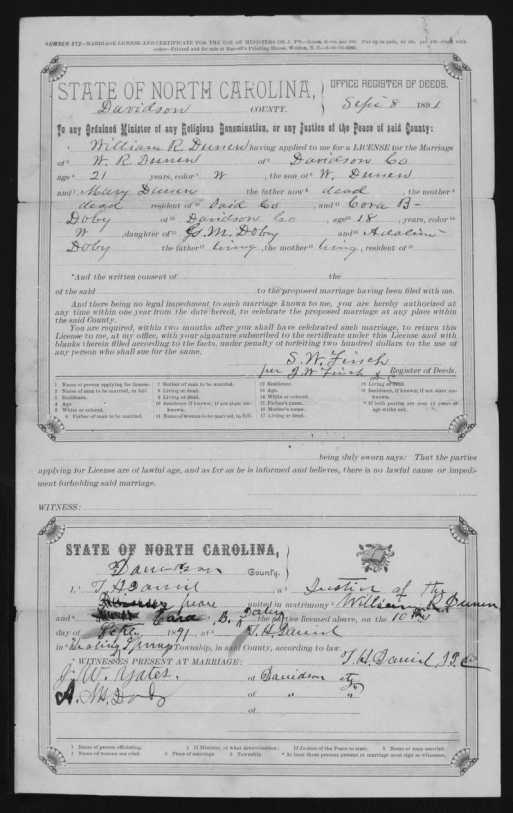 NUMBER 272—MARRIAGE LICENSE AND CERTIFICATE FOR THE USE OF MINISTERS OR J. P'S
STATE OF NORTH CAROLINA,
OFFICE REGISTER OF DEEDS.
Davidson COUNTY. Sept 8 1891
To any Ordained Minister of any Religious Denomination, or any Justice of the Peace of said County:
William R Dunen having applied to me for a LICENSE for the Marriage
of W. R Dunen of Davidson Co
age 21 years, color W, the son of W. Dunen
and Mary Dunen the father now dead, the mother
dead resident of Said Co, and Cora B-
Doby of Davidson Co, age 18, years, color
W, daughter of M. Doby and Adaline
Doby the father living, the mother living, resident of
And the written consent of the
of the said to the proposed marriage having been filed with me.
And there being no legal impediment to such marriage known to me, you are hereby authorized at
any time within one year from the date hereof, to celebrate the proposed marriage at any place within
the said County.
You are required, within two months after you shall have celebrated such marriage, to return this
License to me, at my office, with your signature subscribed to the certificate under this License and with
blanks therein filled according to the facts, under penalty of forfeiting two hundred dollars to the use of
any person who shall sue for the same.
S. W. Finch
per J. W. Finch Register of Deeds.
1 Name of person applying for license.
2 Name of man to be married, in full.
3 Residence.
4 Age.
5 White or colored.
6 Father of man to be married.
7 Mother of man to be married.
8 Living or dead.
9 Living or dead.
10 Residence if known; if not state unknown.
11 Name of woman to be married, in full.
12 Residence.
13 Age.
14 White or colored.
15 Father's name.
16 Mother's name.
17 Living or dead.
18 Living or dead.
being duly sworn says: That the parties
applying for License are of lawful age, and as far as he is informed and believes, there is no lawful cause or impediment forbidding said marriage.
WITNESS:
STATE OF NORTH CAROLINA,
Davidson County.
I, T H Daniel a Justice of the
peace united in matrimony William R Dunen
and Cora B. Doby the parties licensed above, on the 10th
day of Sept 1891, at T. H. Daniel
in Healing Spring Township, in said County, according to law.
T. H. Daniel J P
WITNESSES PRESENT AT MARRIAGE:
J. W. Yates. of Davidson
A. M. Doby of " "
of
1 Name of person officiating.
2 If Minister, of what denomination; If Justice of the Peace so state.